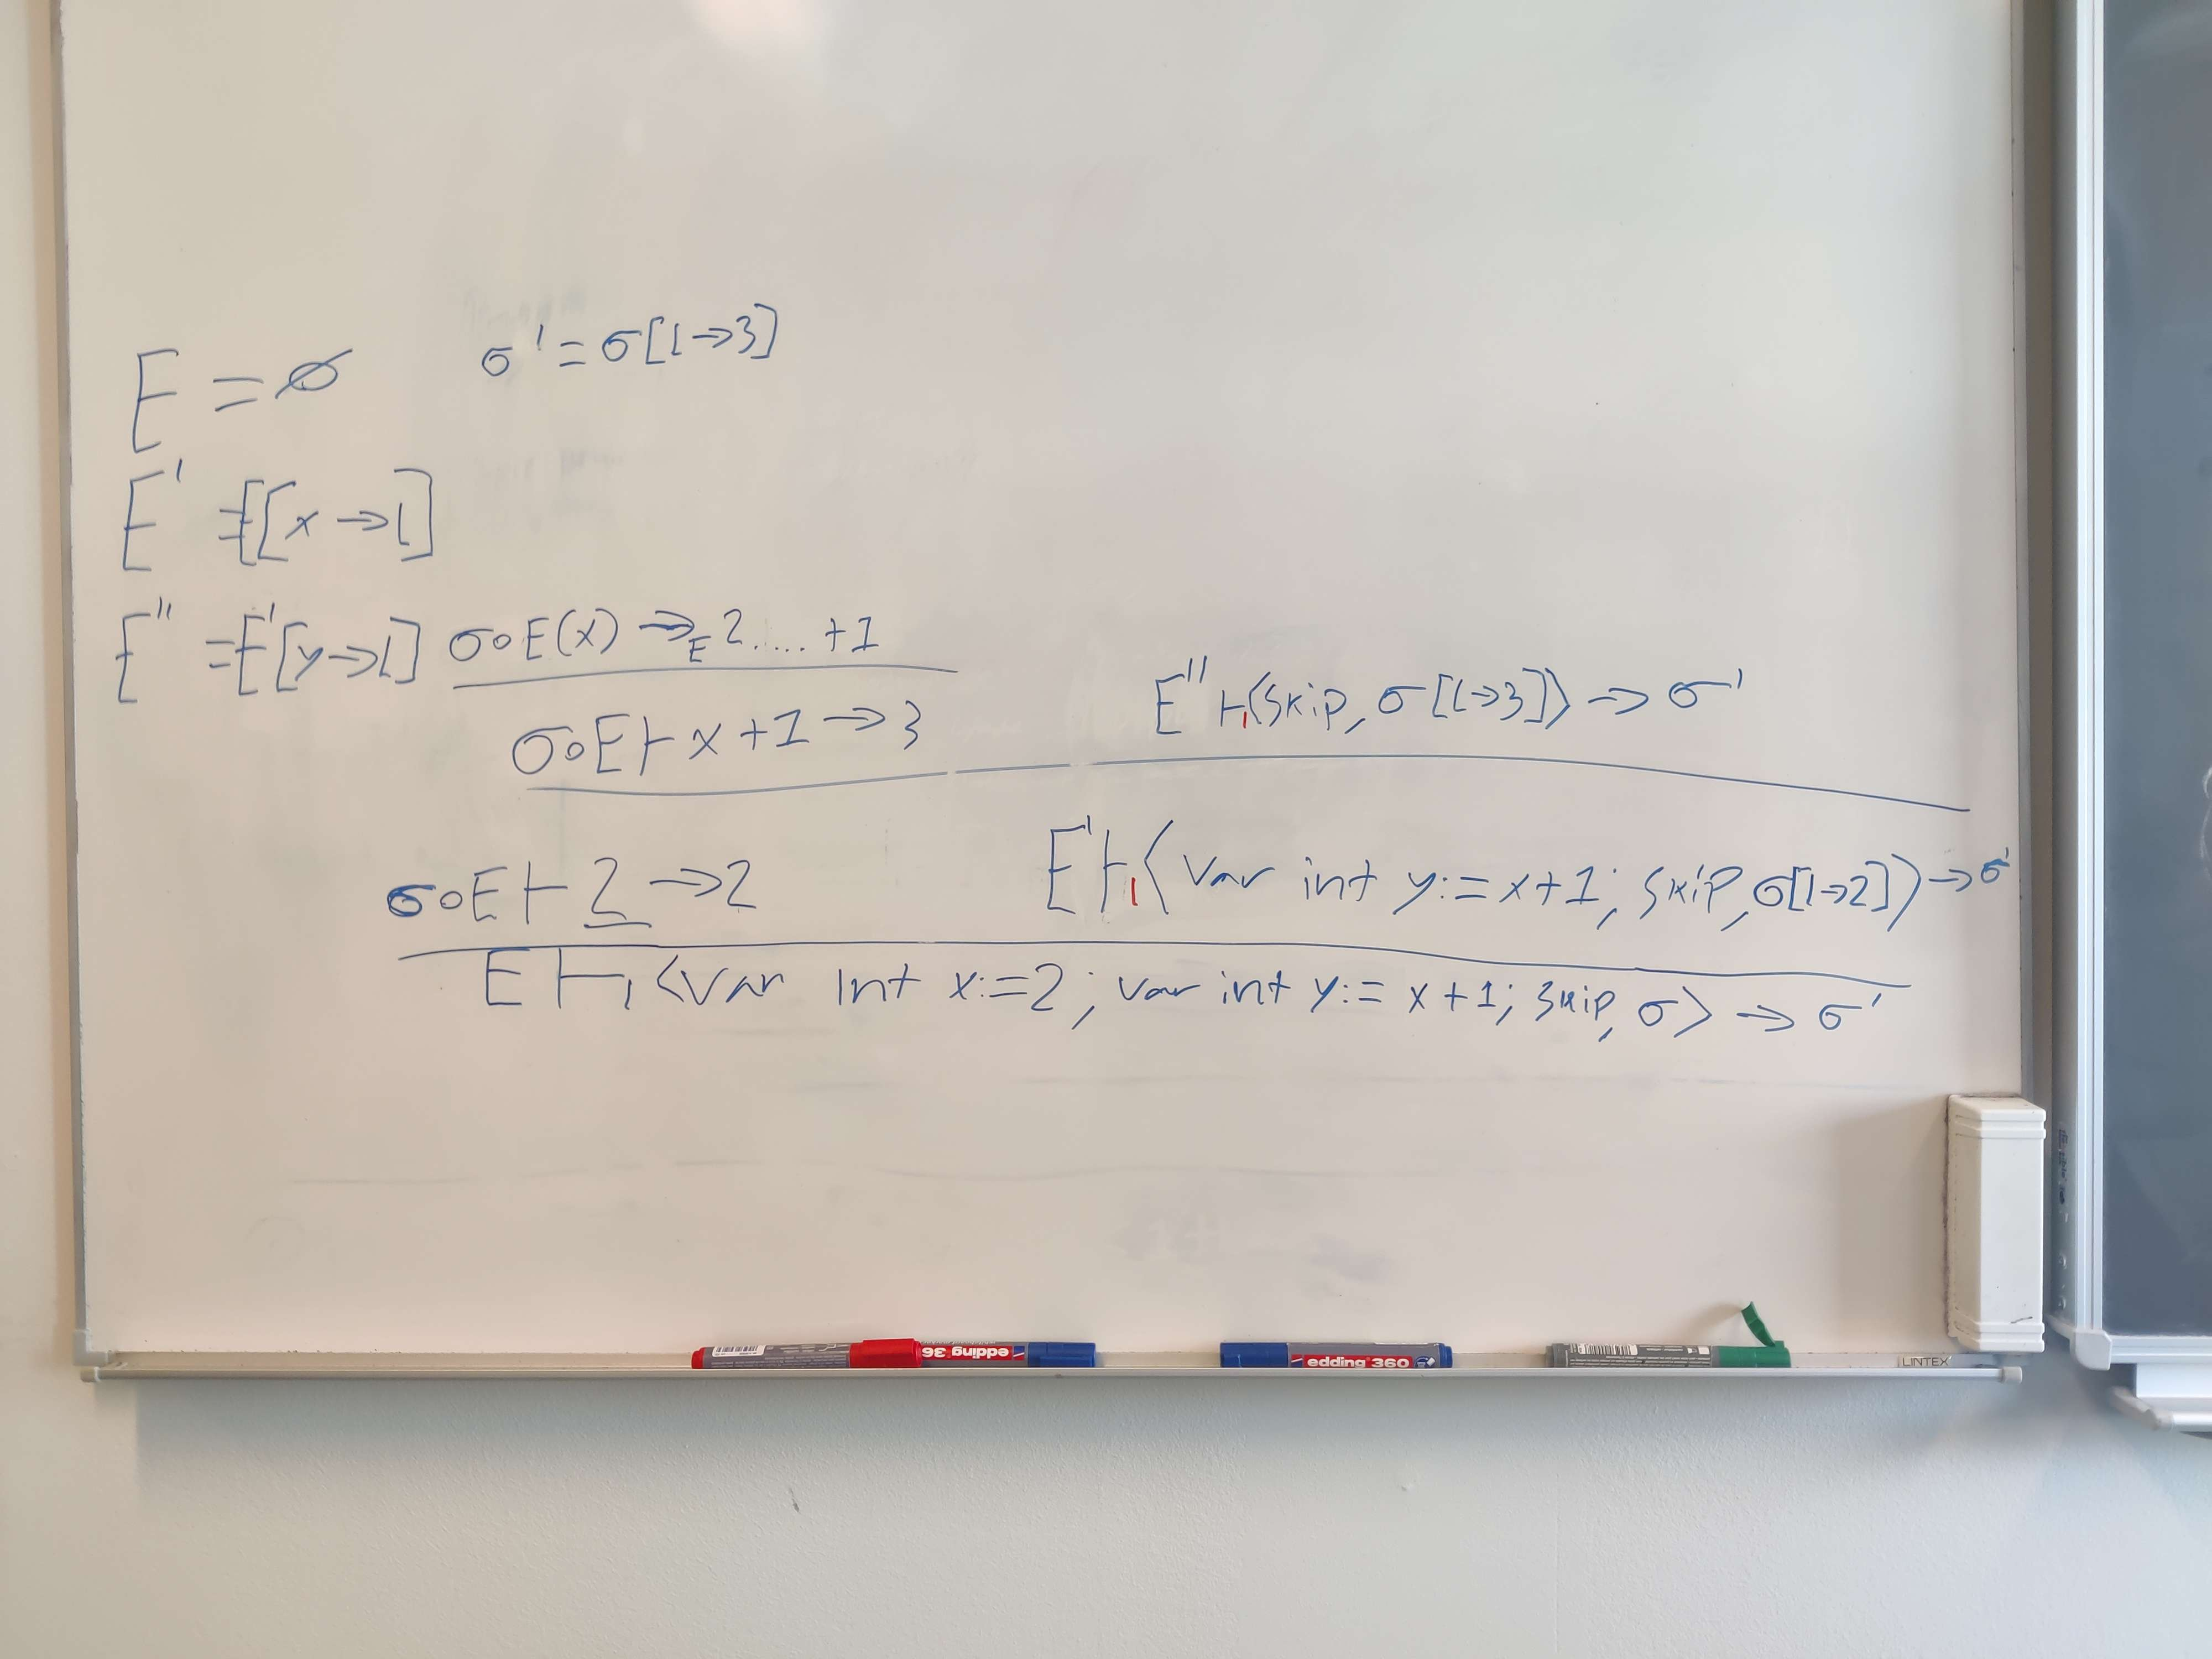 E = ∅
σ' = σ[l→3]
E' = E[x→l]
E'' = E'[y→l]
σ∘E(x) →E 2 .... +1
σ∘E ⊢ x+1 → 3
E'' ⊢₁ ⟨skip, σ[l→3]⟩ → σ'
σ∘E ⊢ 2 → 2
E' ⊢₁ ⟨var int y:=x+1; skip, σ[l→2]⟩ → σ'
E ⊢₁ ⟨var int x:=2; var int y:= x+1; skip, σ⟩ → σ'
edding 36
edding 360
LINTEX